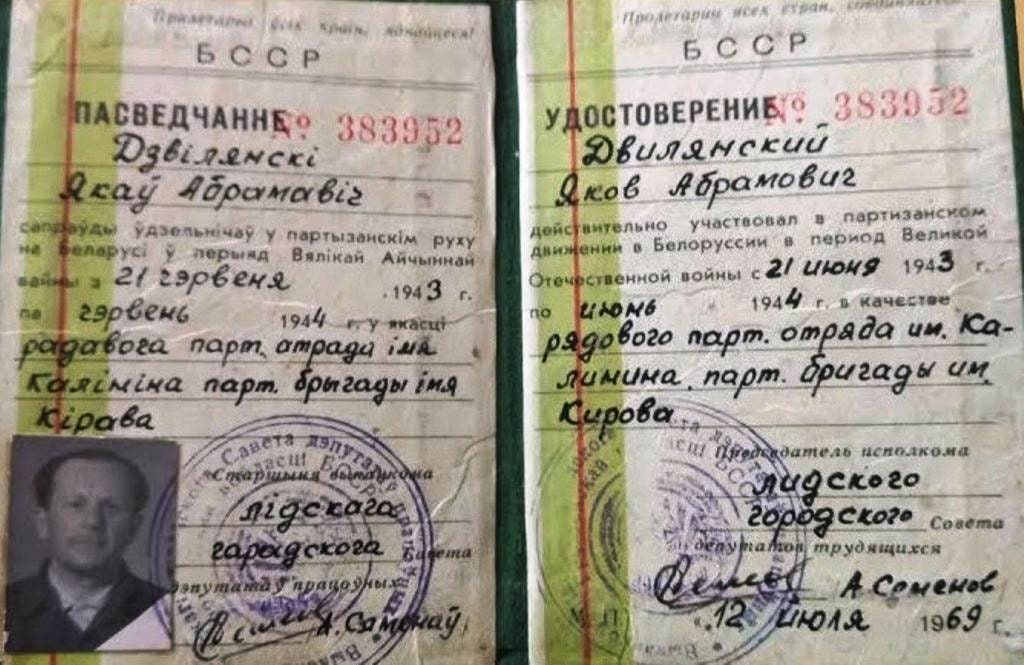 Пралетарыі ўсіх краін, яднайцеся!
БССР
ПАСВЕДЧАННЕ № 383952
Дзвілянскі
Якаў Абрамавіч
сапраўды ўдзельнічаў у партызанскім руху
на Беларусі ў перыяд Вялікай Айчыннай
вайны з 21 чэрвеня 1943 г.
па чэрвень 1944 г. у якасці
радавога парт. атрада імя
Калініна парт. брыгады імя
Кірава
Старшыня выканкома
лідскага
гарадскога Савета
дэпутатаў працоўных
А. Самёнаў
Пролетарии всех стран, соединяйтесь!
БССР
УДОСТОВЕРЕНИЕ № 383952
Двилянский
Яков Абрамович
действительно участвовал в партизанском
движении в Белоруссии в период Великой
Отечественной войны с 21 июня 1943 г.
по июнь 1944 г. в качестве
рядового парт. отряда им. Ка-
линина парт. бригады им.
Кирова
Председатель исполкома
лидского
городского Совета
депутатов трудящихся
А. Семенов
"12 июля 1969 г.